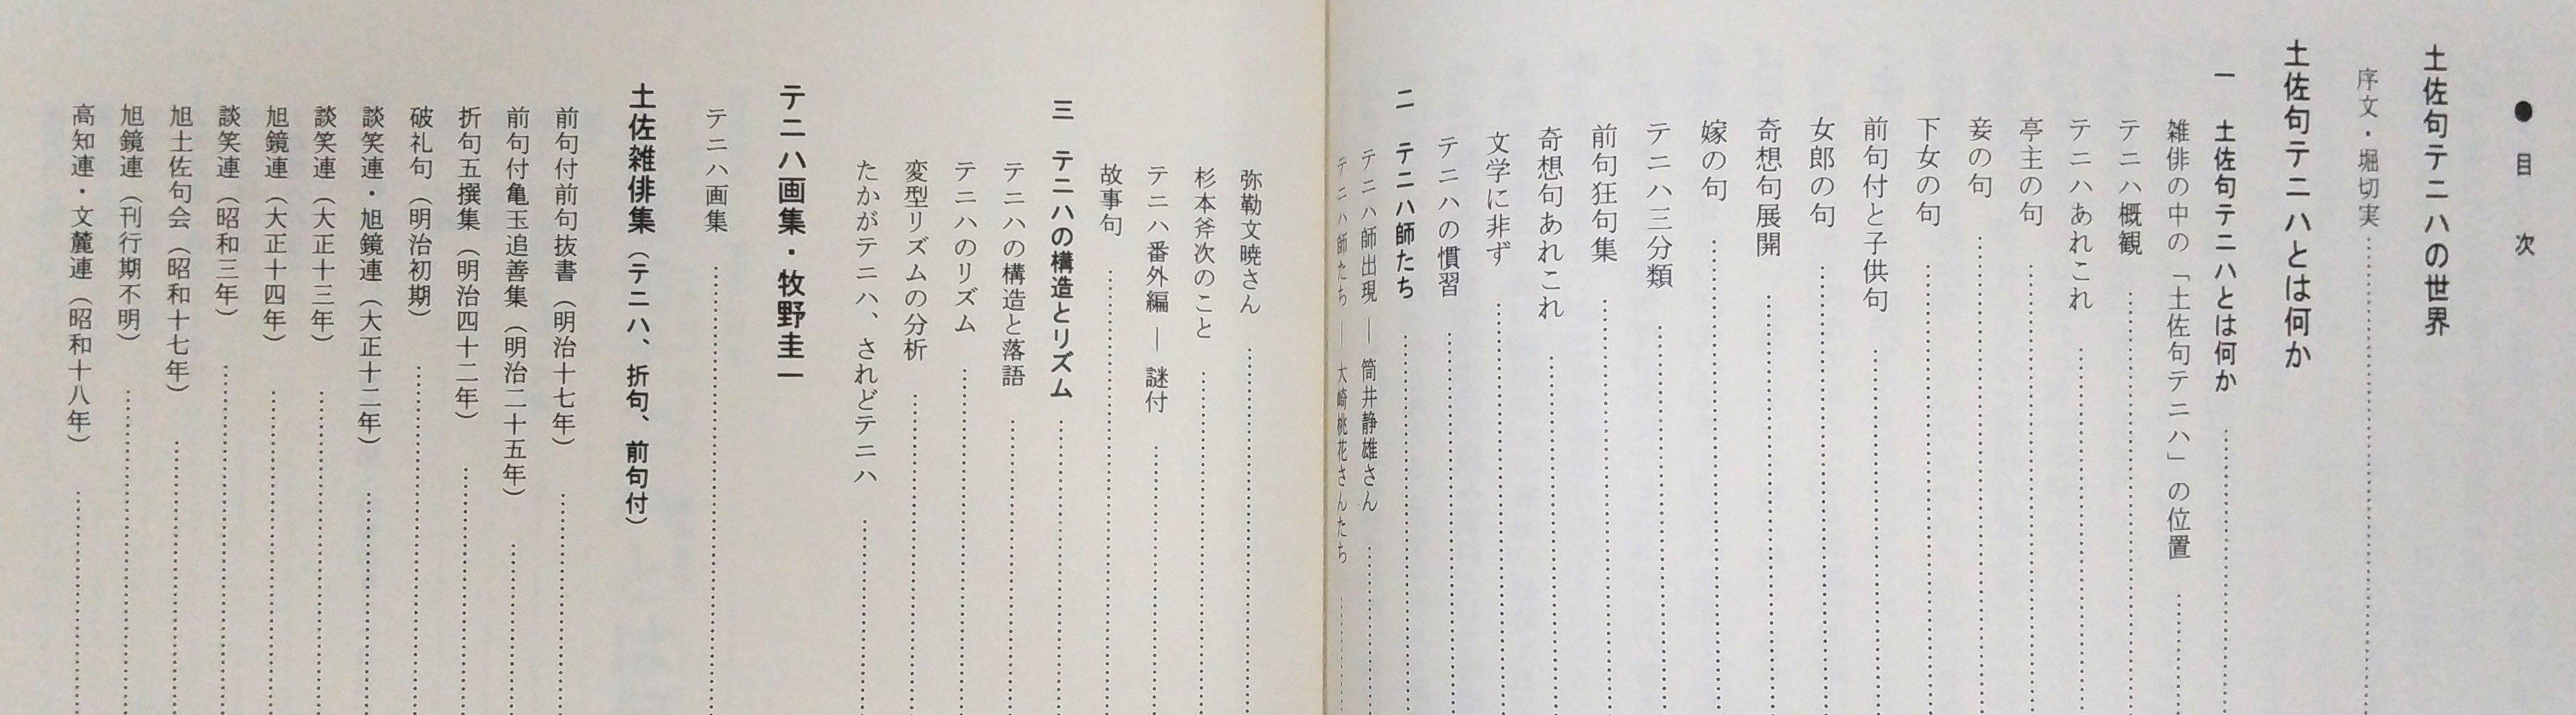 ●目次
土佐句テニハの世界
序文・堀切実
土佐句テニハとは何か
一 土佐句テニハとは何か
雑俳の中の「土佐句テニハ」の位置
テニハ概観
テニハあれこれ
亭主の句
妾の句
下女の句
前句付と子供句
女郎の句
奇想句展開
嫁の句
テニハ三分類
前句狂句集
奇想句あれこれ
文学に非ず
テニハの慣習
二 テニハ師たち
テニハ師出現―筒井静雄さん
テニハ師たち―大崎桃花さんたち
弥勒文暁さん
杉本斧次のこと
テニハ番外編―謎付
故事句
三 テニハの構造とリズム
テニハの構造と落語
テニハのリズム
変型リズムの分析
たかがテニハ、されどテニハ
テニハ画集・牧野圭一
テニハ画集
土佐雑俳集（テニハ、折句、前句付）
前句付前句抜書（明治十七年）
前句付亀玉追善集（明治二十五年）
折句五撰集（明治四十二年）
破礼句（明治初期）
談笑連・旭鏡連（大正十二年）
談笑連（大正十三年）
旭鏡連（大正十四年）
談笑連（昭和三年）
旭土佐句会（昭和十七年）
旭鏡連（刊行期不明）
高知連・文麓連（昭和十八年）